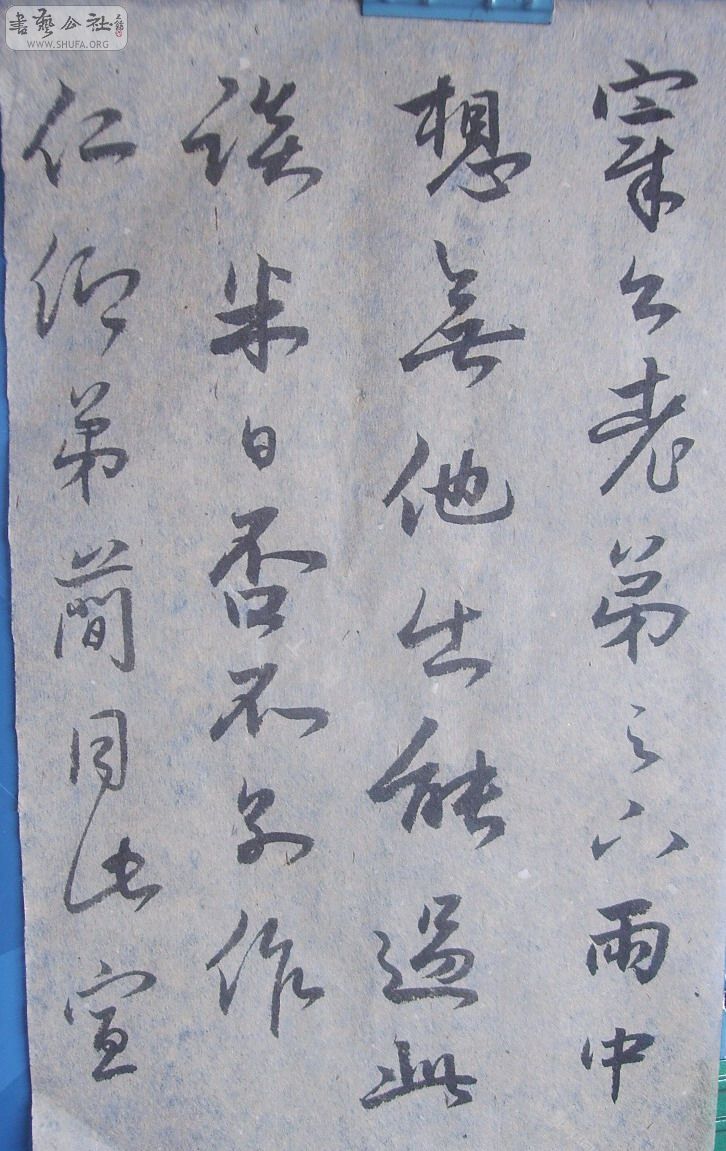 寀公老弟之六雨中
想無他出能過此
談半日否不別作
仁仰弟簡同此宣
書藝公社
WWW.SHUFA.ORG